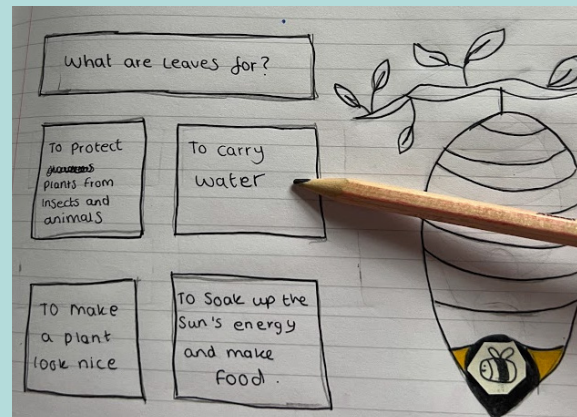 What are leaves for?
To protect
plants from
insects and
animals
To carry
water
To make
a plant
look nice
To soak up the
Sun's energy
and make
food.